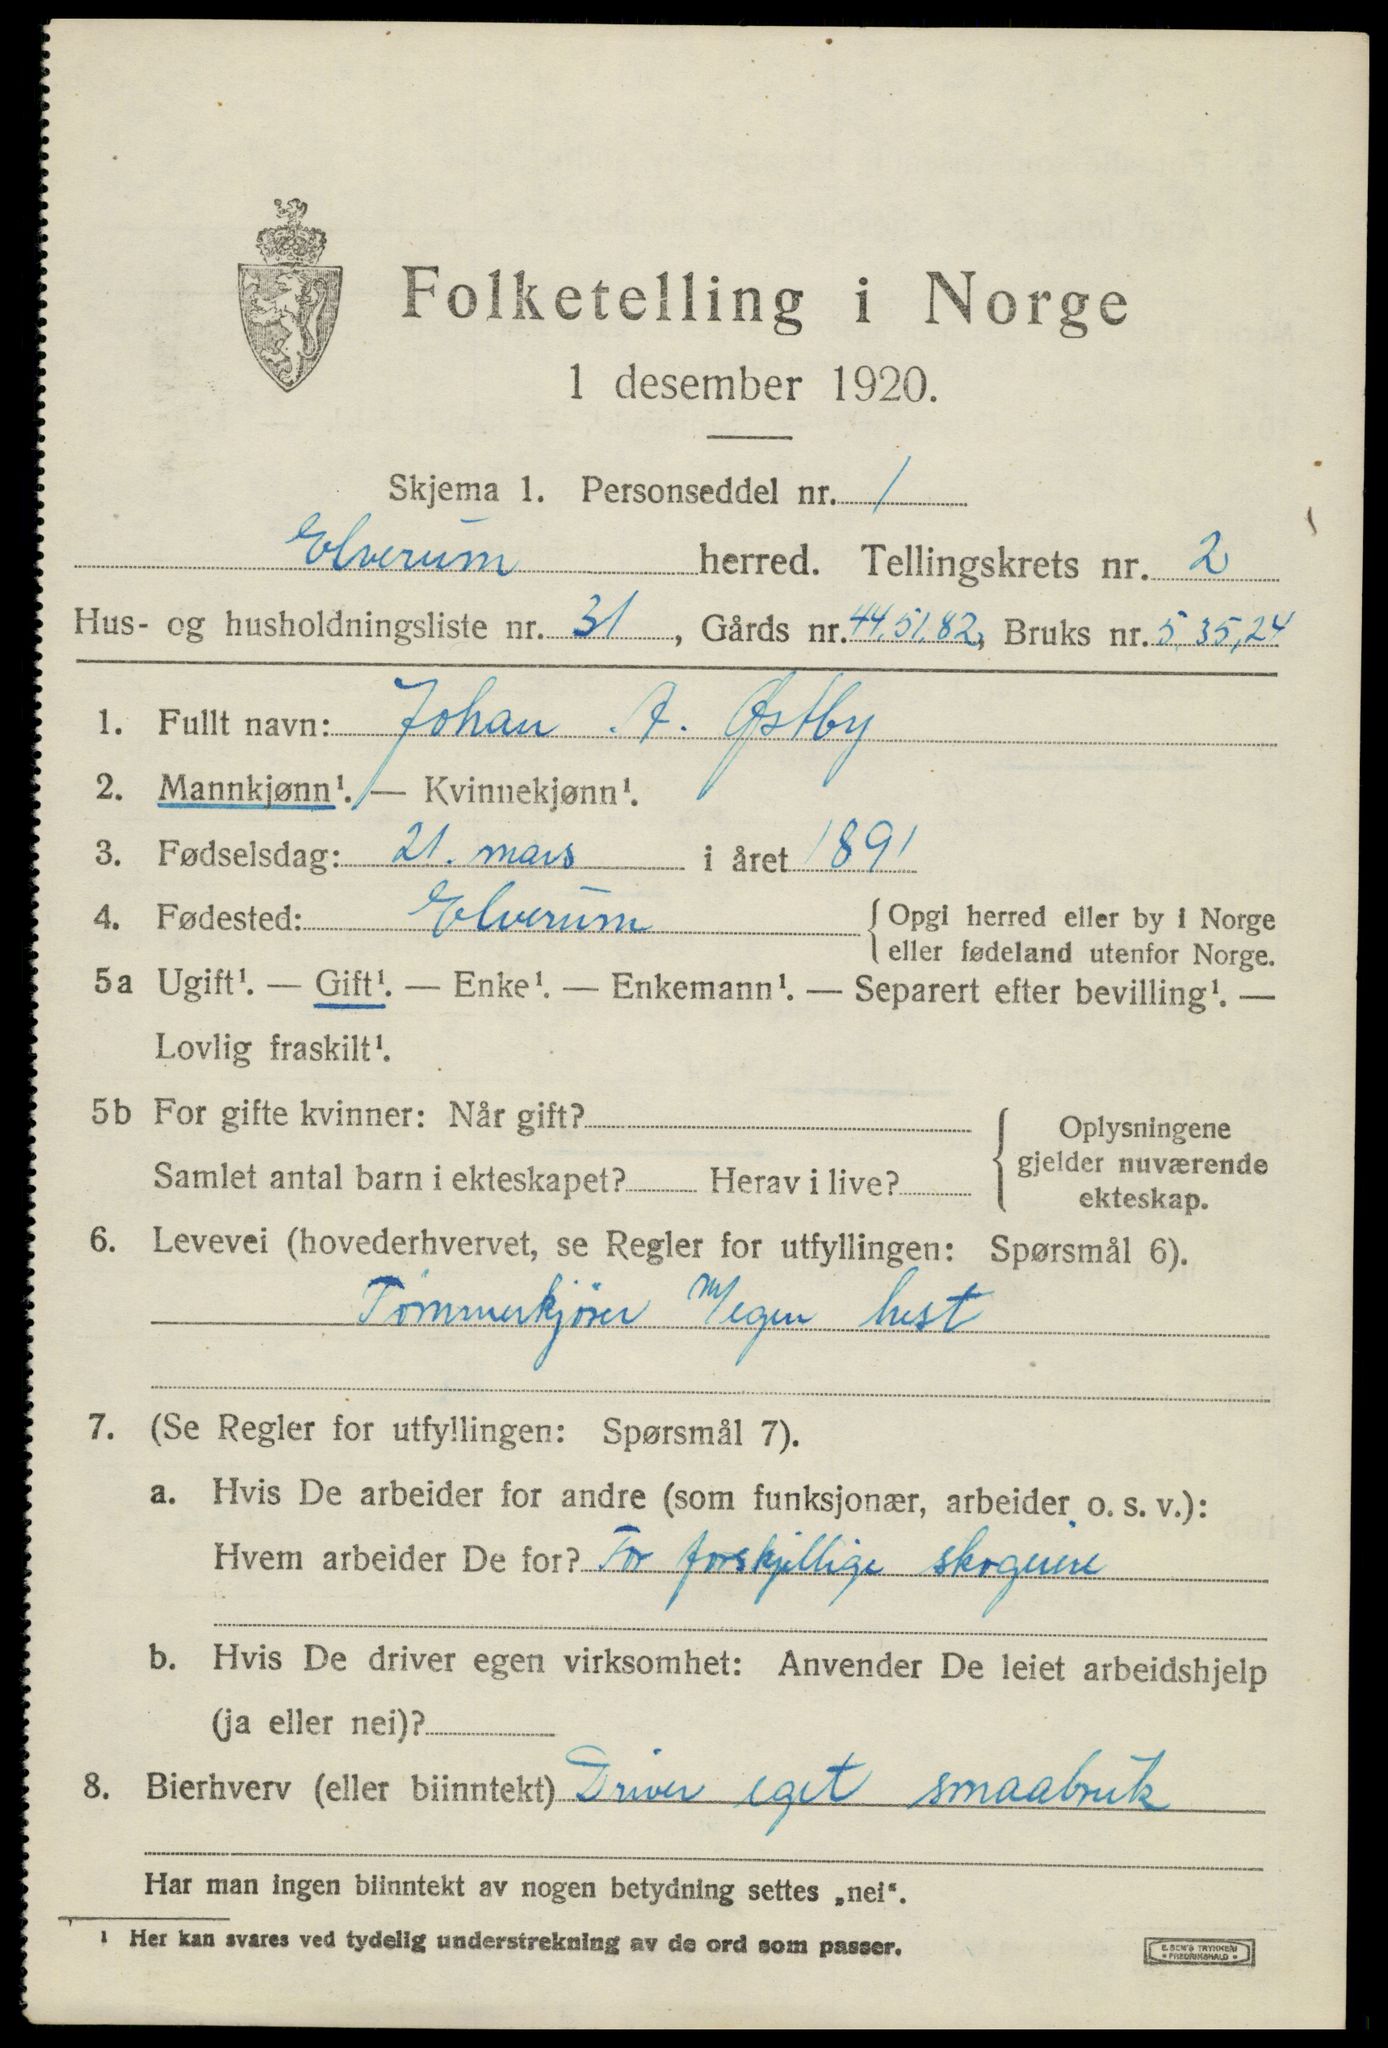 Folketelling i Norge
1 desember 1920.
Skjema 1. Personseddel nr. 1
Elverum herred. Tellingskrets nr. 2
Hus- og husholdningsliste nr. 31, Gårds nr. 44, 51, 82, Bruks nr. 5, 35, 24
1. Fullt navn: Johan A. Østby
2. Mannkjønn¹. — Kvinnekjønn¹.
3. Fødselsdag: 21. mars i året 1891
4. Fødested: Elverum {Opgi herred eller by i Norge
eller fødeland utenfor Norge.
5a Ugift¹. — Gift¹. — Enke¹. — Enkemann¹. — Separert efter bevilling¹. —
Lovlig fraskilt¹.
5b For gifte kvinner: Når gift?
Samlet antal barn i ekteskapet? Herav i live?
Oplysningene
gjelder nuværende
ekteskap.
6. Levevei (hovederhvervet, se Regler for utfyllingen: Spørsmål 6).
Tømmerkjører m/egen hest
7. (Se Regler for utfyllingen: Spørsmål 7).
a. Hvis De arbeider for andre (som funksjonær, arbeider o. s. v.):
Hvem arbeider De for? For forskjellige skogeiere
b. Hvis De driver egen virksomhet: Anvender De leiet arbeidshjelp
(ja eller nei)?
8. Bierhverv (eller biinntekt) Driver eget smaabruk
Har man ingen biinntekt av nogen betydning settes „nei“.
¹ Her kan svares ved tydelig understrekning av de ord som passer.
E. SEM'S TRYKKERI
• FREDRIKSHALD •